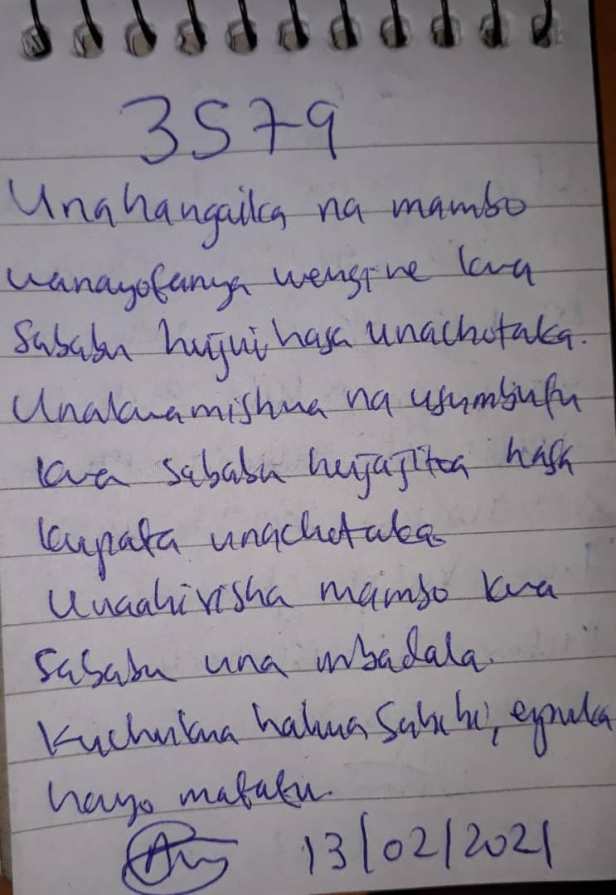 3579
Unahangaika na mambo
wanayofanya wengine kwa
sababu hujui hasa unachotaka.
Unakwamishwa na usumbufu
kwa sababu hujajitoa hasa
kupata unachotaka
Unaahirisha mambo kwa
sababu una mbadala.
Kuchukua hatua sahihi, epuka
hayo matatu.
13/02/2021